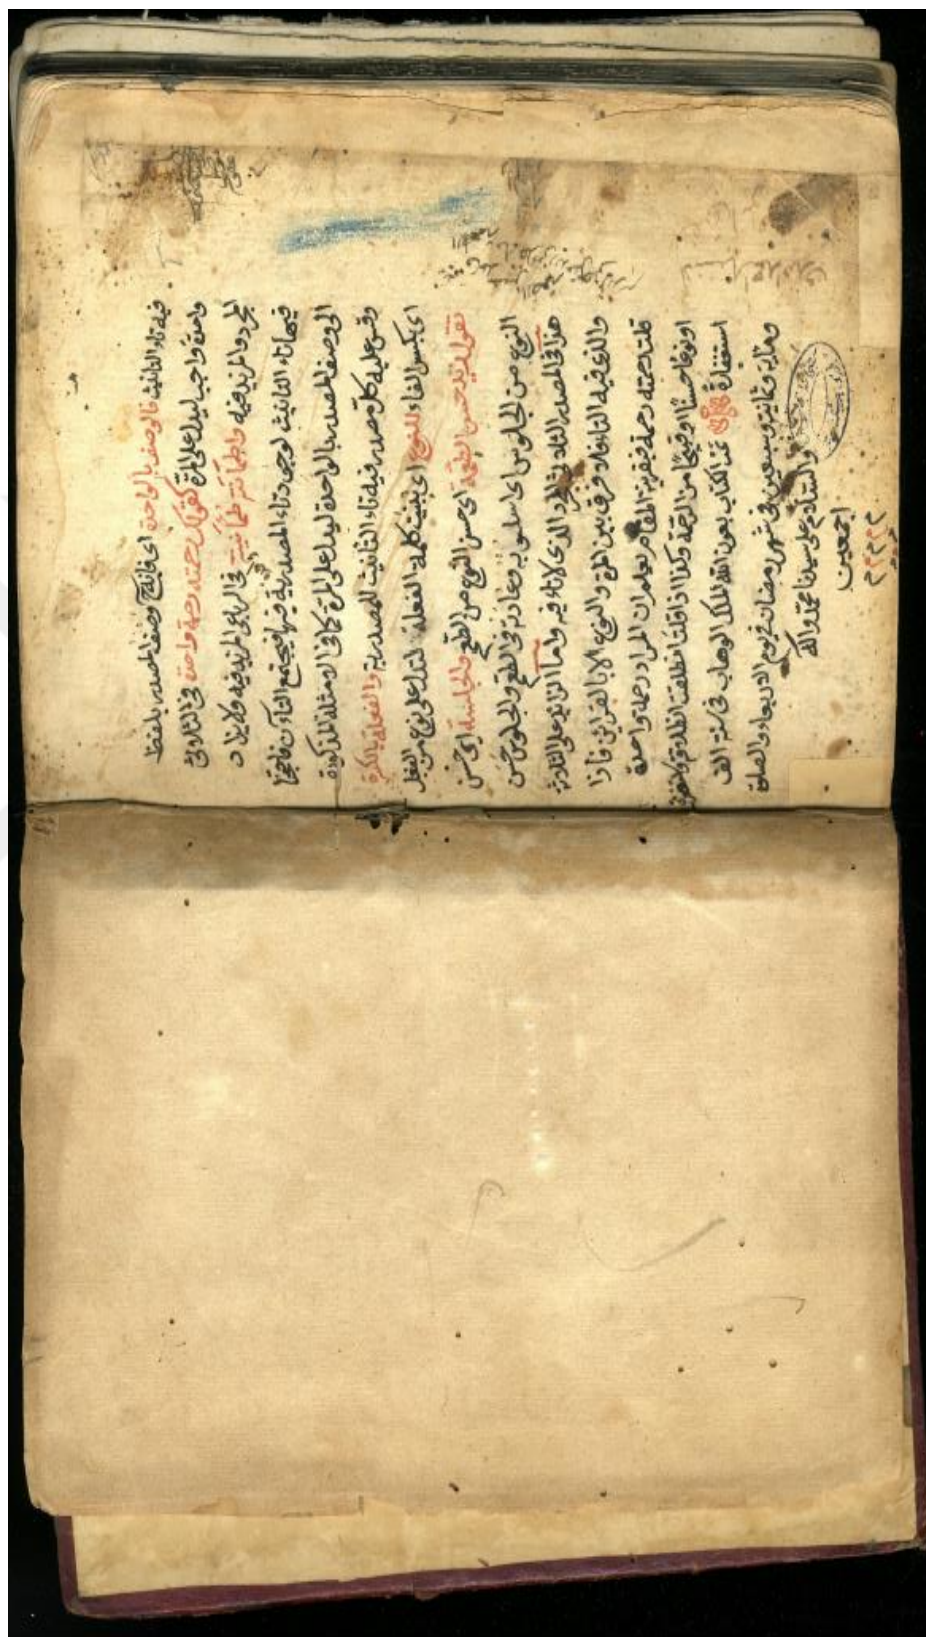 فيه تاء التأنيث فالوصف بالواحدة اى فانه وصف المصدر بلفظ
واحدة واجب ليدل على المرة كقولك رحمته رحمة واحدة فى الثلاثى
المجرد والمزيد فيه واطمأننت طمأنينة فى الرباعى المزيد فيه ولا يزاد
فيها تاء التأنيث لوجود تاء المصدرية فيها فيجتمع التاآن
الى وصف المصدر بالواحدة ليدل على المرة كما فى الامثلة المذكورة
وقس عليه كل مصدر فيه تاء التأنيث المصدرية والفعلة بالكسرة
اى بكسر الفاء للنوع اى بنيت كلمة الفعلة لتدل على نوع من الفعل
تقول زيد حسن الطعمة اى حسن النوع من الطعم والجلسة اى حسن
النوع من الجلوس اى اسلوبه وعادته فى الطعم والجلوس حسن
هذا فى المصدر الثلاثى المجرد الذى لا تاء فيه واما الزايد على الثلاثة
والذى فيه التاء فلا فرق بين المرة والنوع الا بالقراين فاذا
قلت رحمته رحمة فبقرينة المقام يعلم ان المراد رحمة واحدة
او نوعا حسنا او قبيحا من الرحمة وكذا اذا قلت انطلقت انطلاقة
استغفارة تم تمت الكتاب بعون الله الملك الوهاب فى سنة الف
ومائة وثمانية وسبعين فى شهر رمضان فى يوم الاربعاء والصلوة
والسلام على سيدنا محمد واله
اجمعين